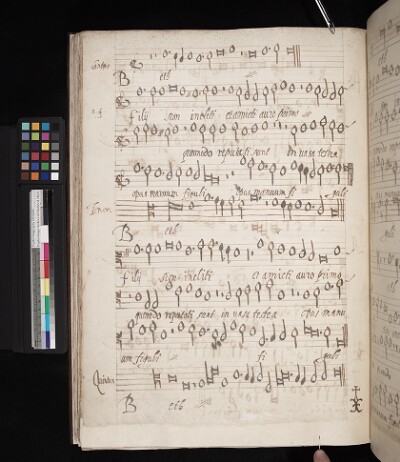 B eth
filij sion incliti et amicti auro primo
quomodo reputati sunt in vasa testea
opus manuum figuli opus manuum fi guli
Tenor
B eth
filij sion incliti et amicti auro primo
quomodo reputati sunt in vasa testea opus manu
um figuli fi guli
Quintus
B eth